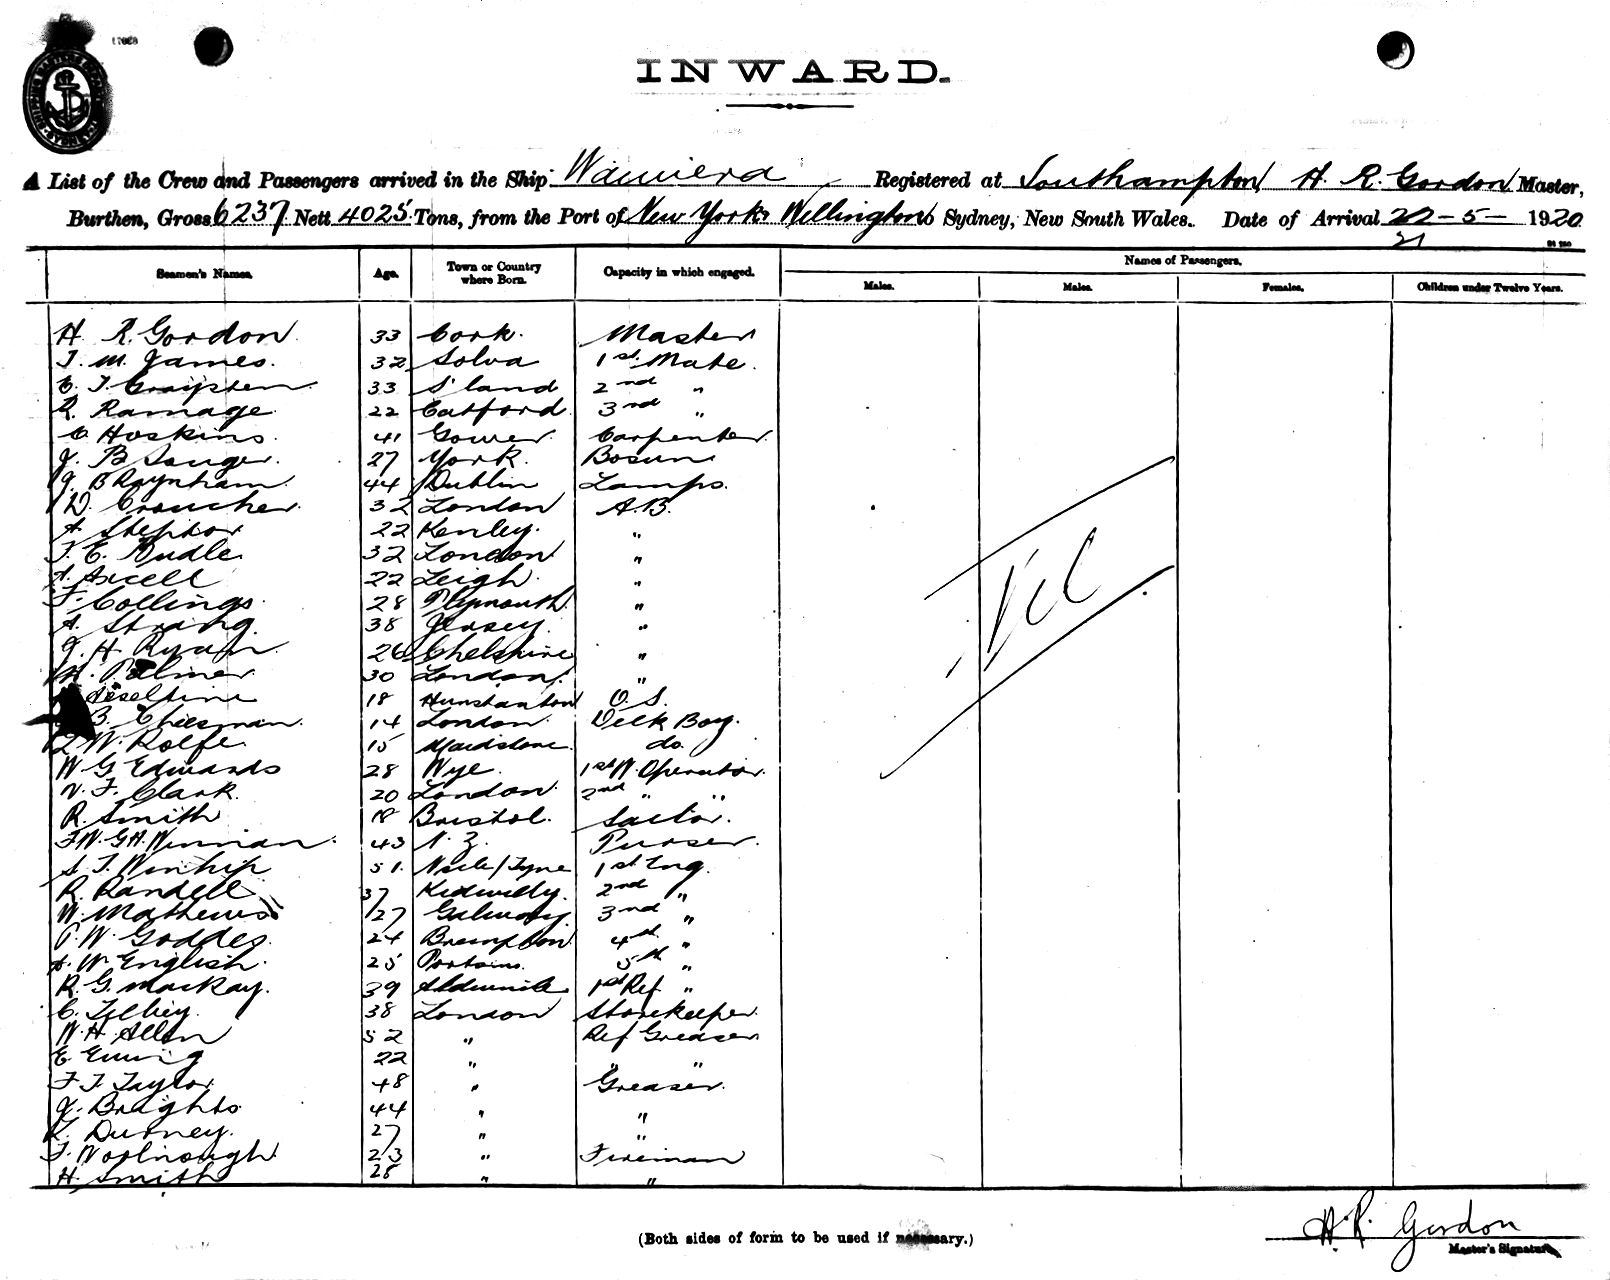 INWARD.
A List of the Crew and Passengers arrived in the Ship Waimera Registered at Southampton H. R. Gordon Master,
Burthen, Gross 6237 Nett 4025 Tons, from the Port of New York, Wellington to Sydney, New South Wales. Date of Arrival 22-5-1920
21
Names of Passengers.
Seamen's Names. Age. Town or Country where Born. Capacity in which engaged. Males. Males. Females. Children under Twelve Years.
H. R. Gordon 33 Cork. Master
T. M. James. 32 Solva 1st Mate.
33 S'land 2nd "
R. Ramage 22 Catford 3rd "
C Hoskins. 41 Gower Carpenter.
J. B Sanger. 27 York. Bosun
G. B Raynham. 44 Dublin Lamps.
D. Croucher 32 London A.B.
A. Steptor 22 Kenley. "
T. E. Rudle 32 London "
A. Axcell 22 Leigh. "
F. Collings. 28 Plymouth "
A. Strang. 38 Jersey. "
J. H. Ryan 26 Chelshire "
Nil
H. Palmer 30 London. "
18 Hunstanton O.S.
B. Cheesman. 14 London. Deck Boy.
W. Rolfe 15 Maidstone. do.
W G Edwards 28 Wye. 1st W. Operator.
V. F. Clark. 20 London. 2nd " "
R. Smith 18 Bristol. Sailor.
F.W. G.H. Winman. 43 N. Z. Purser.
S. T. Winship 51. Ncle/Tyne 1st Eng.
R. Randell 37 Kidwelly. 2nd "
W. Mathews 27 Galway 3rd "
P. W. Goddes. 24 Brampton 4th "
A. W. English. 25 5th "
R. G. Mackay. 39 1st Ref "
C. Tilbey. 38 London Storekeeper.
W. H. Allen 52 " Ref Greaser
E. Ewing 22 " " "
F. T. Taylor 48 " Greaser.
J. Brights. 44 " "
Durney. 27 " "
F. Woolnough. 23 " Fireman
H. Smith 28 " "
(Both sides of form to be used if necessary.)
H. R. Gordon
Master's Signature